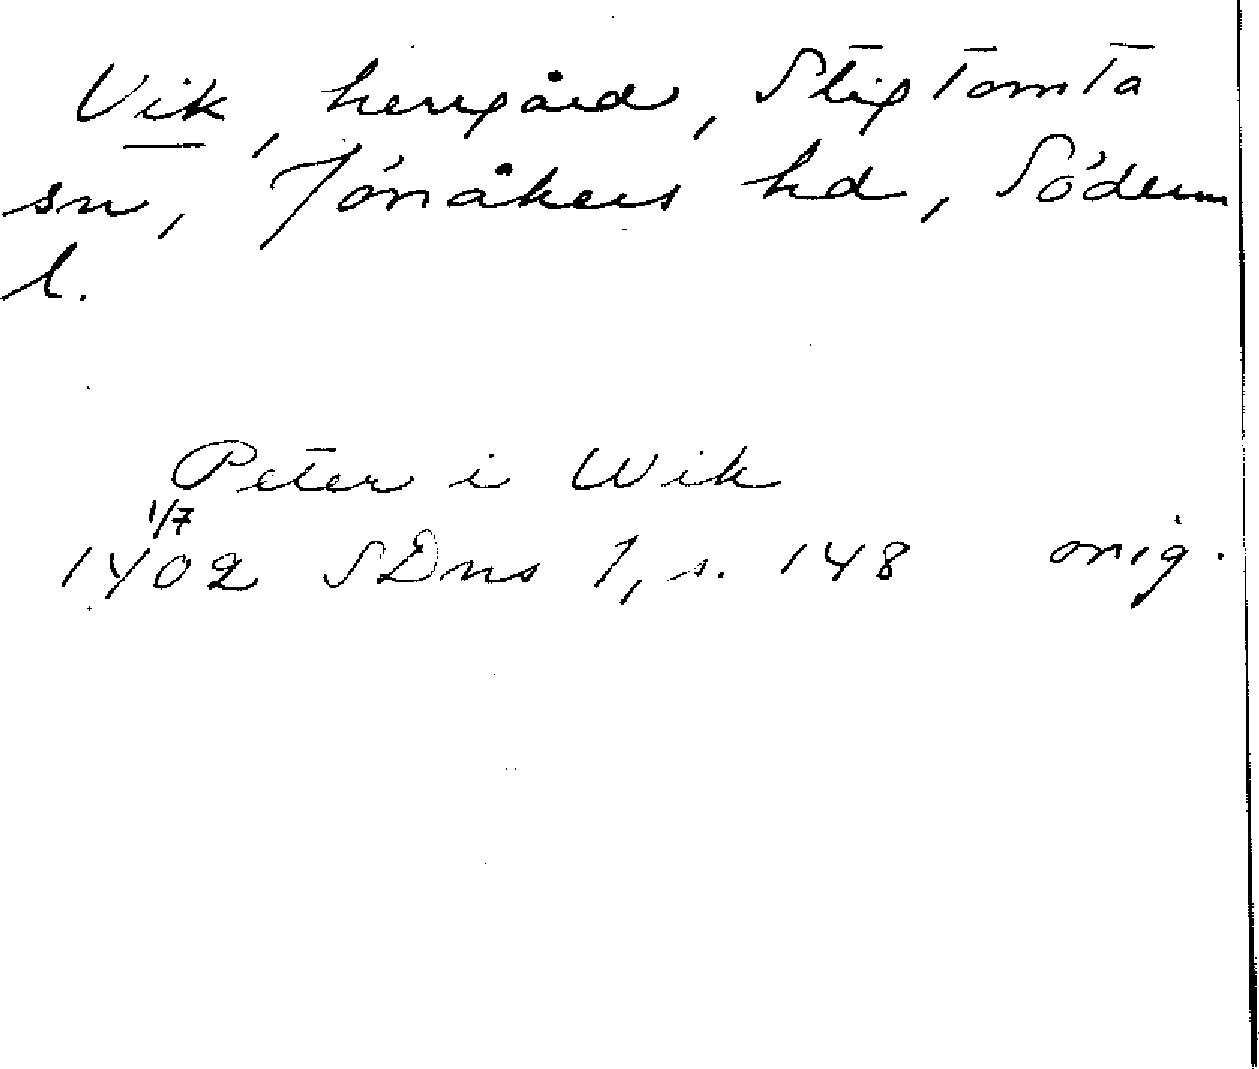 Vik, herrgård, Stigtomta
sn, Jönåkers hd, Söderm
l.
Peter i Wik
1/7
1402 SDns 1, s. 148 orig.